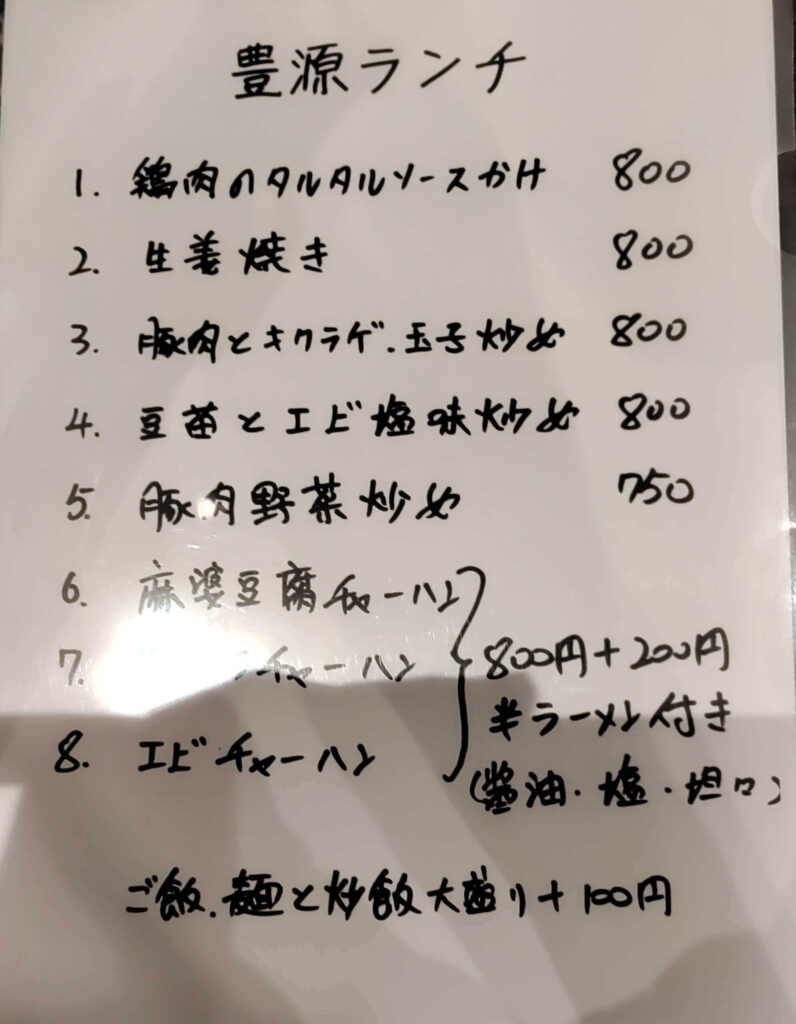 豊源ランチ
1. 鶏肉のタルタルソースかけ 800
2. 生姜焼き 800
3. 豚肉とキクラゲ.玉子炒め 800
4. 豆苗とエビ塩味炒め 800
5. 豚肉野菜炒め 750
6. 麻婆豆腐チャーハン
7. チャーハン
8. エビチャーハン
800円+200円
半ラーメン付き
(醤油・塩・坦々)
ご飯.麺と炒飯大盛り+100円